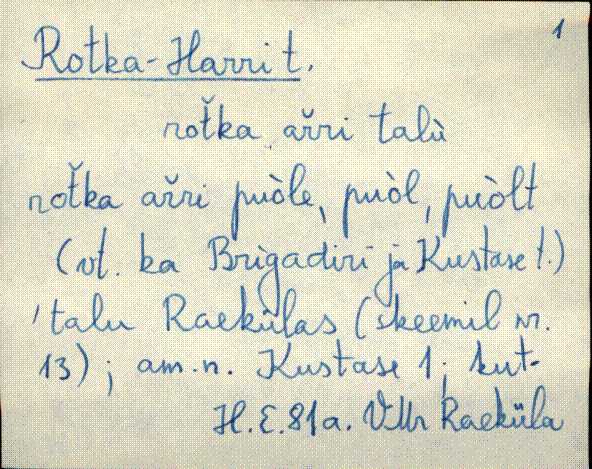 1
Rotka-Harri t.
roťka ařri talù
roťka ařri puòle, puòl, puòlt
(vt. ka Brigadiri ja Kustase t.)
talu Raekülas (skeemil nr.
13); am.n. Kustase 1; kut-
H.E.81a. VMr Raeküla